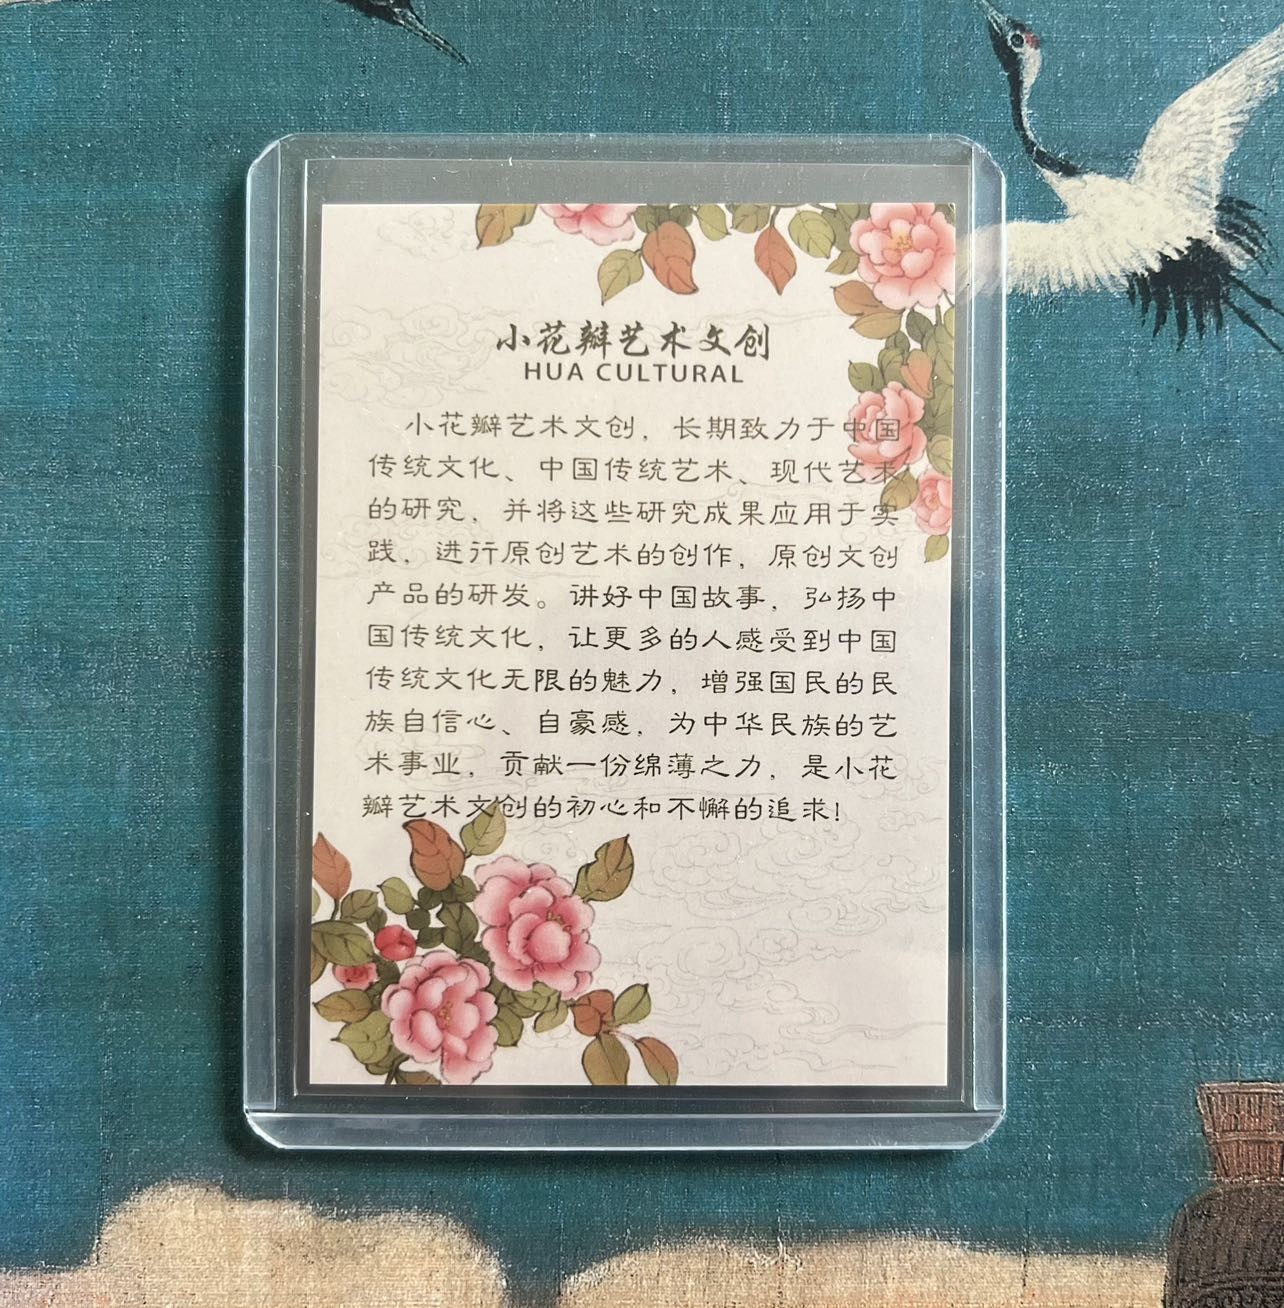 小花瓣艺术文创
HUA CULTURAL
小花瓣艺术文创，长期致力于中国
传统文化、中国传统艺术、现代艺术
的研究，并将这些研究成果应用于实
践，进行原创艺术的创作，原创文创
产品的研发。讲好中国故事，弘扬中
国传统文化，让更多的人感受到中国
传统文化无限的魅力，增强国民的民
族自信心、自豪感，为中华民族的艺
术事业，贡献一份绵薄之力，是小花
瓣艺术文创的初心和不懈的追求！